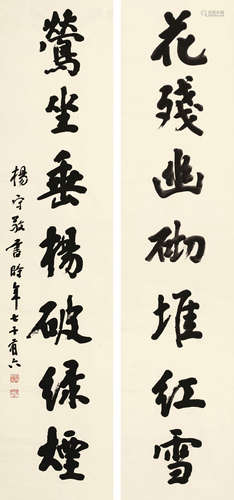 花殘幽砌堆紅雪
鶯坐垂楊破綠煙
楊守敬書時年七十有六